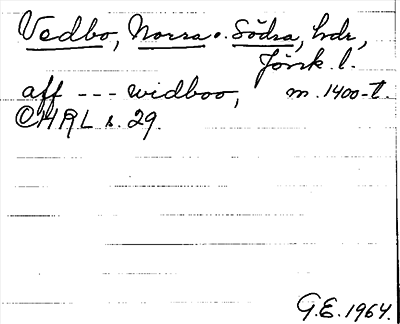 Vedbo, Norra o. Södra, hdr,
Jönk. l.
aff --- widboo, m. 1400-t.
©HRL s. 29.
G.E. 1964.